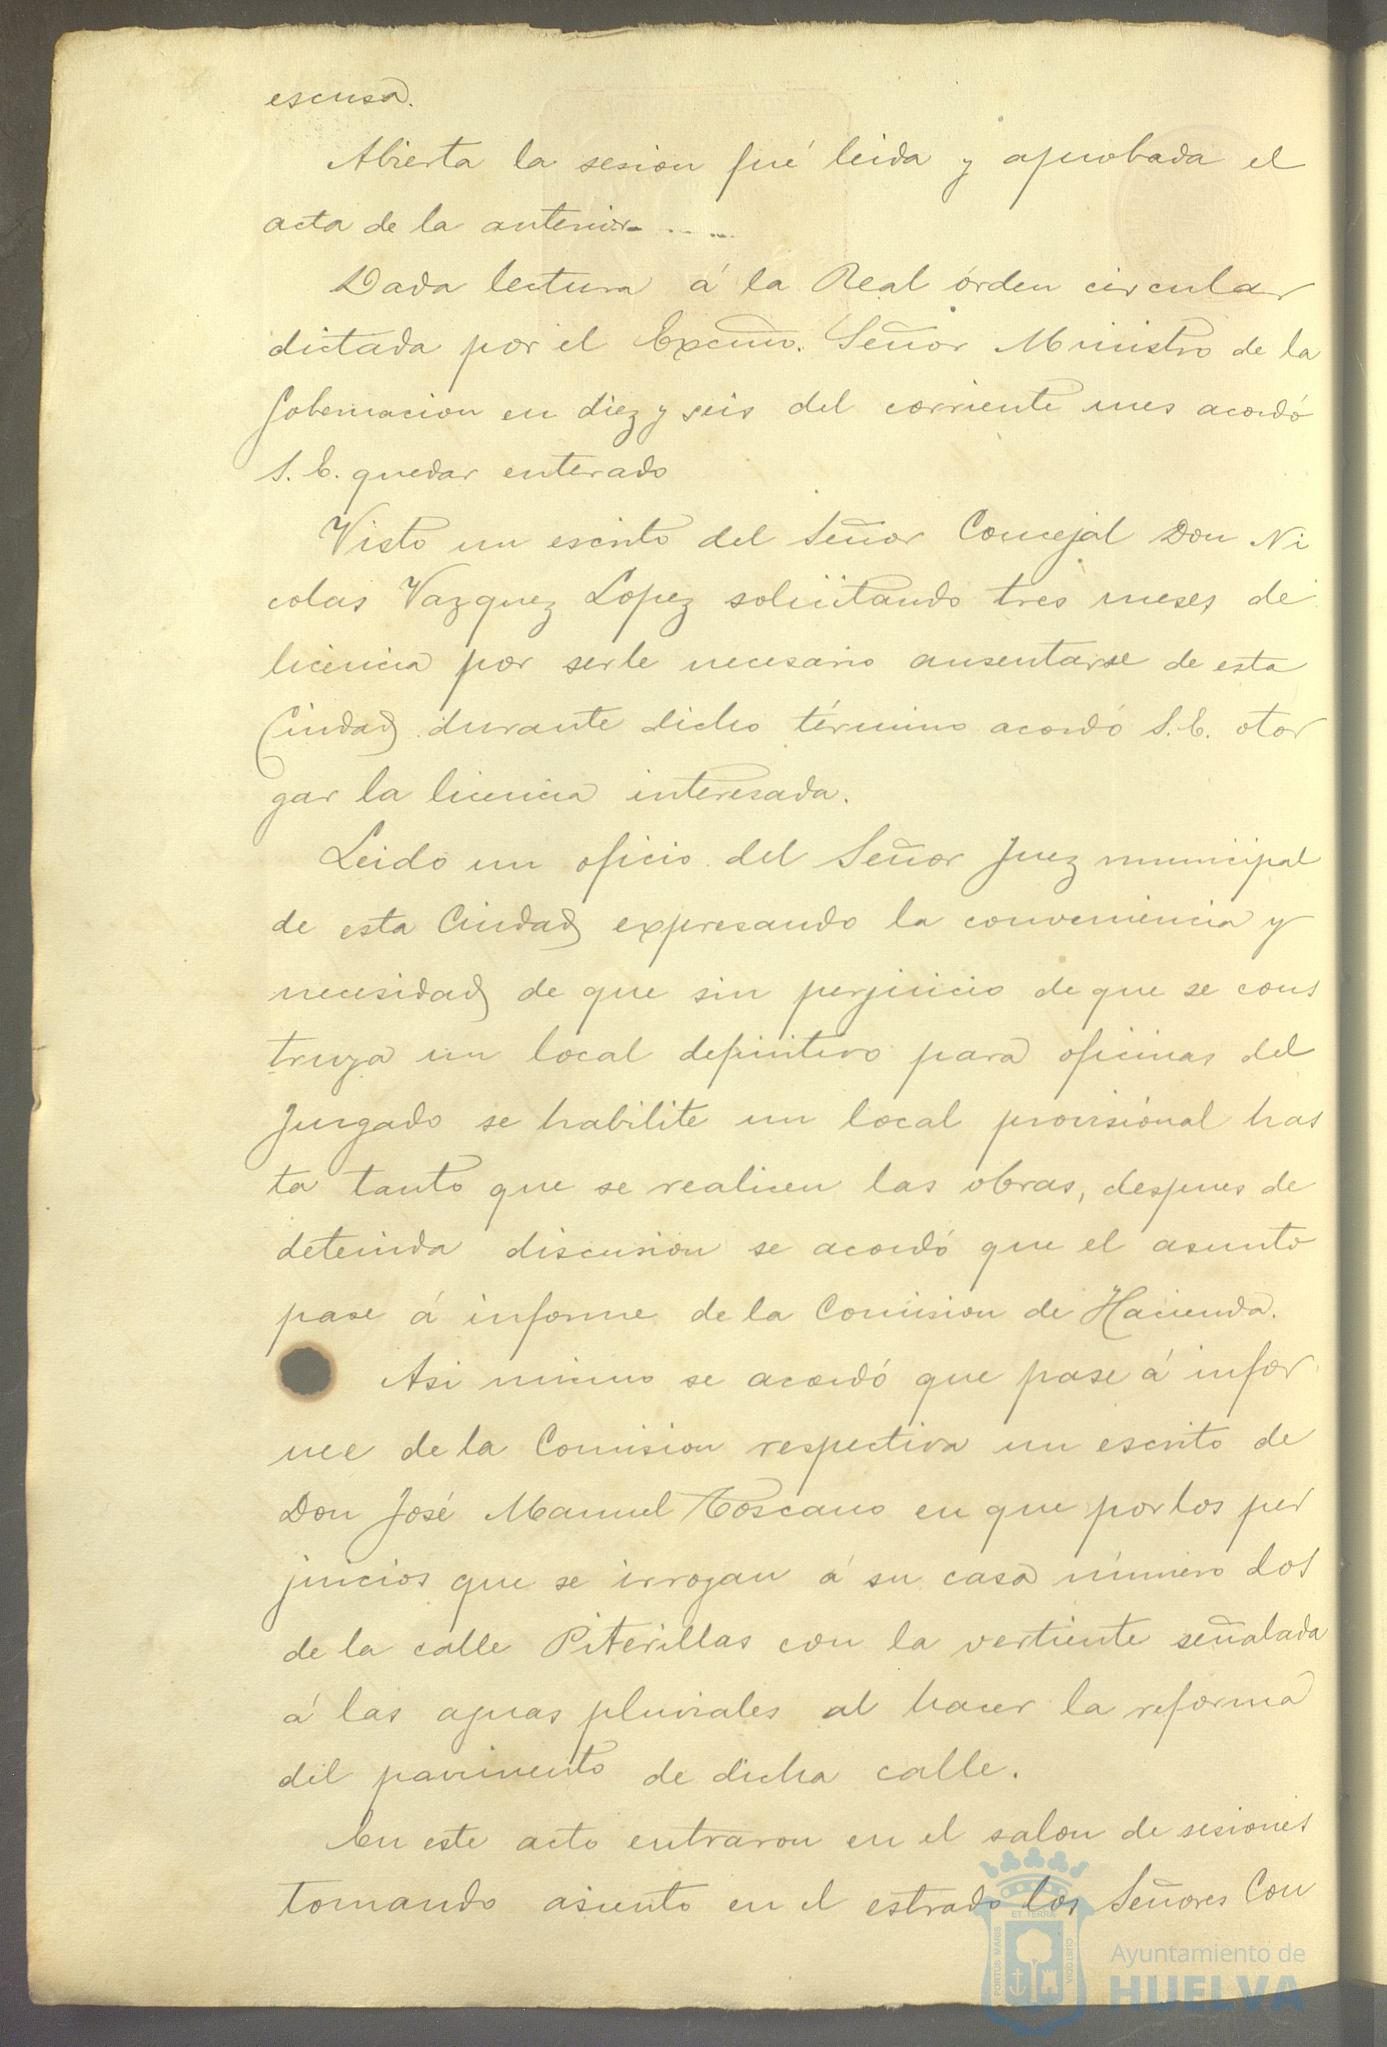 escusa.
Abierta la sesion fué leida y aprobada el
acta de la anterior. . . ...
Dada lectura á la Real órden circular
dictada por el Excmo. Señor Ministro de la
Gobernacion en diez y seis del corriente mes acordó
S. E. quedar enterado
Visto un escrito del Señor Concejal Don Ni
colas Vazquez Lopez solicitando tres meses de
licencia por serle necesario ausentarse de esta
Ciudad durante dicho término acordó S. E. otor
gar la licencia interesada.
Leido un oficio del Señor Juez municipal
de esta Ciudad expresando la conveniencia y
necesidad de que sin perjuicio de que se cons
truya un local definitivo para oficinas del
Juzgado se habilite un local provisional has
ta tanto que se realicen las obras, despues de
detenida discusion se acordó que el asunto
pase á informe de la Comision de Hacienda.
Asi mismo se acordó que pase á infor
me de la Comision respectiva un escrito de
Don José Manuel Toscano en que por los per
juicios que se irrogan á su casa número dos
de la calle Piterillas con la vertiente señalada
á las aguas pluviales al hacer la reforma
del pavimento de dicha calle.
En este acto entraron en el salon de sesiones
tomando asiento en el estrado los Señores Con
PORTUS MARIS ET TERRAE CUSTODIA
Ayuntamiento de
HUELVA